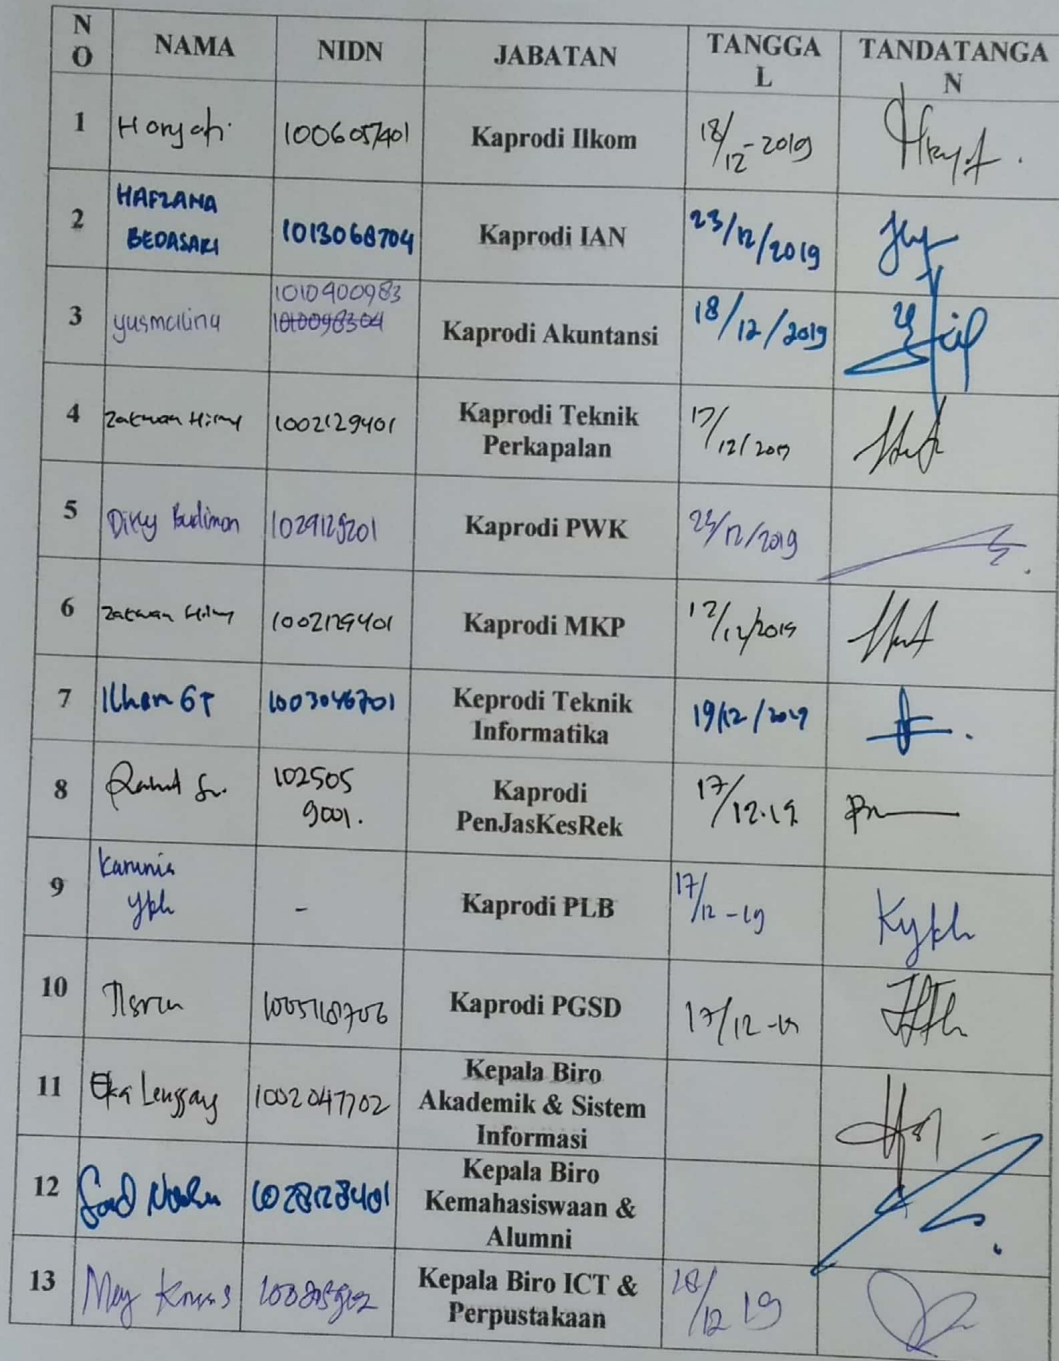 N
O
NAMA
NIDN
JABATAN
TANGGA
L
TANDATANGA
N
1
Haryati
1006057401
Kaprodi Ilkom
18/12-2019
2
HAFZANA
BEDASARI
1013068704
Kaprodi IAN
23/12/2019
3
yusmalina
1010900983
1010098304
Kaprodi Akuntansi
18/12/2019
4
Zatwan Hilmy
1002129401
Kaprodi Teknik
Perkapalan
17/12/2019
5
Budiman
Kaprodi PWK
23/12/2019
6
Zatwan Hilmy
1002129401
Kaprodi MKP
12/2019
7
Ilham
1003046701
Keprodi Teknik
Informatika
19/12/2019
8
102505
9001.
Kaprodi
PenJasKesRek
17/12.19
9
Karunia
-
Kaprodi PLB
17/12-19
10
Kaprodi PGSD
17/12-19
11
Eka Lenggang
1002047702
Kepala Biro
Akademik & Sistem
Informasi
12
1028128401
Kepala Biro
Kemahasiswaan &
Alumni
13
May
Kepala Biro ICT &
Perpustakaan
18/12 19